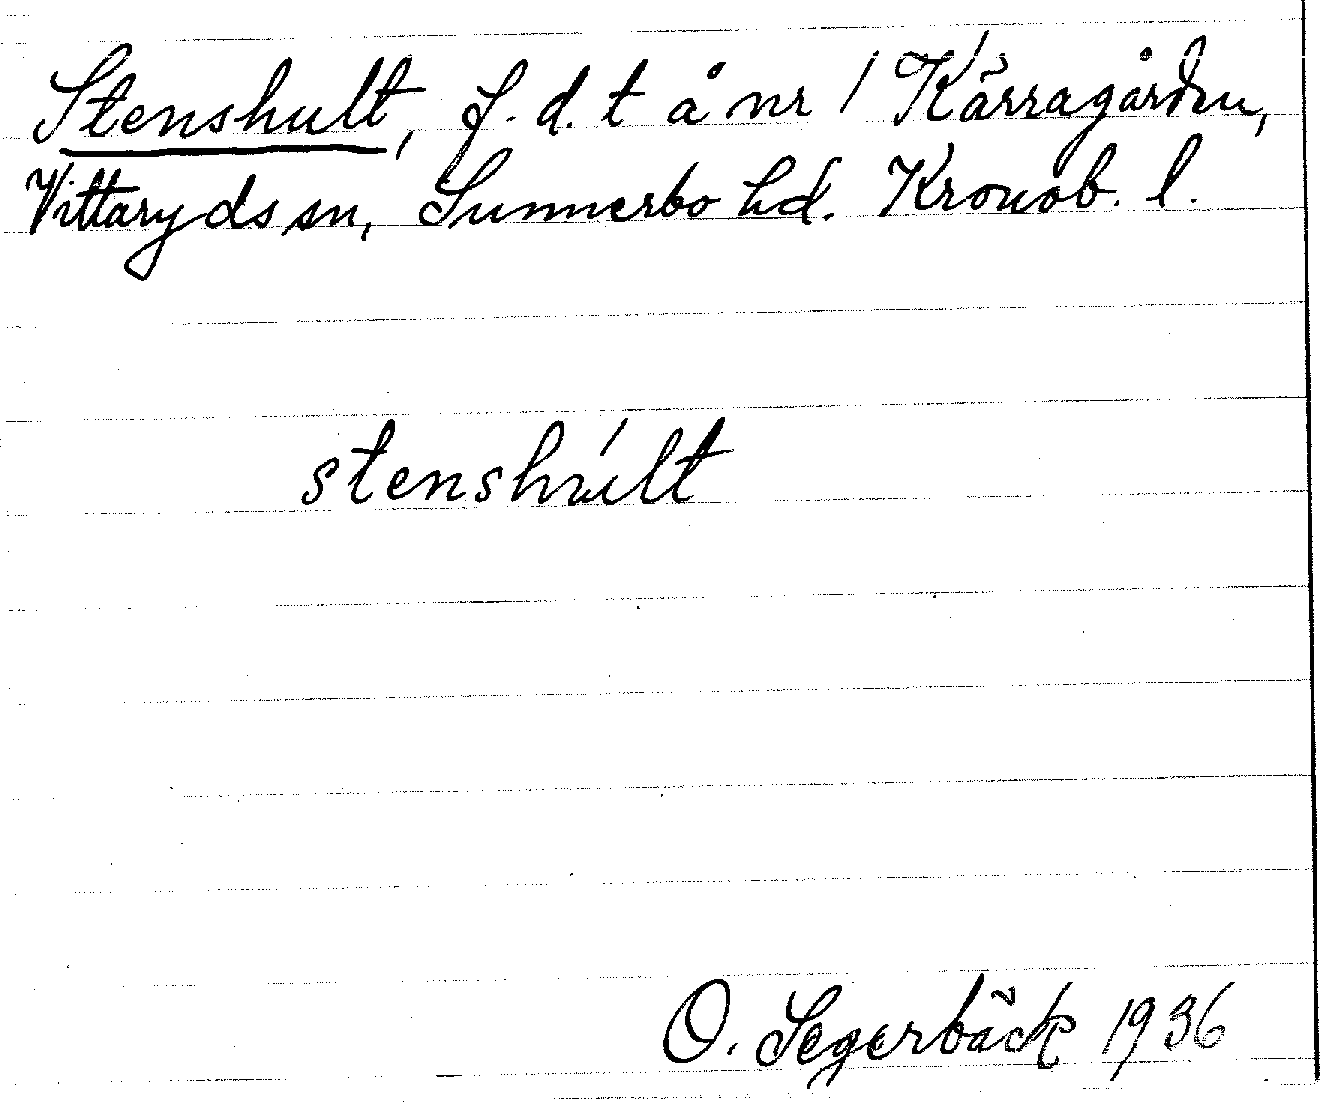 Stenshult, f. d. t å nr 1 Kärragården,
Vittaryds sn, Sunnerbo hd. Kronob. l.
stenshúlt
O. Segerbäck 1936